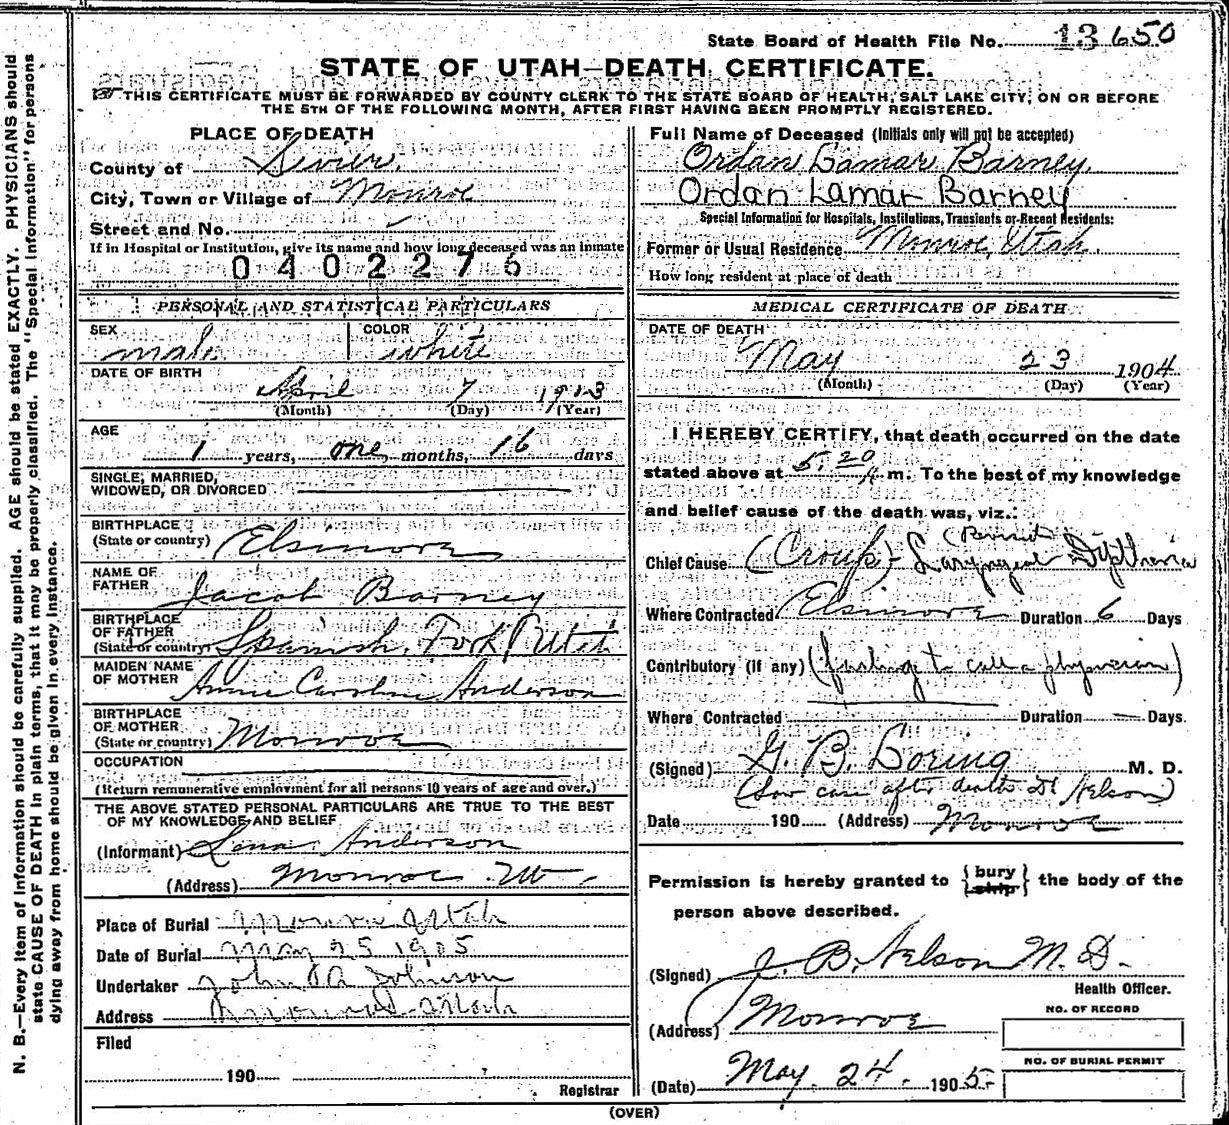 State Board of Health File No. 13650
STATE OF UTAH—DEATH CERTIFICATE.
THIS CERTIFICATE MUST BE FORWARDED BY COUNTY CLERK TO THE STATE BOARD OF HEALTH, SALT LAKE CITY, ON OR BEFORE
THE 5TH OF THE FOLLOWING MONTH, AFTER FIRST HAVING BEEN PROMPTLY REGISTERED.
N. B.—Every item of information should be carefully supplied. AGE should be stated EXACTLY. PHYSICIANS should
state CAUSE OF DEATH in plain terms, that it may be properly classified. The "Special Information" for persons
dying away from home should be given in every instance.
PLACE OF DEATH
County of Sevier
City, Town or Village of Monroe
Street and No.
If in Hospital or Institution, give its name and how long deceased was an inmate
0402275
PERSONAL AND STATISTICAL PARTICULARS
SEX male
COLOR white
DATE OF BIRTH
April 7
(Month) (Day) (Year)
AGE
1 years, one months, 16 days
SINGLE, MARRIED,
WIDOWED, OR DIVORCED
BIRTHPLACE
(State or country) Elsinore
NAME OF
FATHER Jacob Barney
BIRTHPLACE
OF FATHER
(State or country) Spanish Fork Utah
MAIDEN NAME
OF MOTHER Annie Caroline Anderson
BIRTHPLACE
OF MOTHER
(State or country) Monroe
OCCUPATION
(Return remunerative employment for all persons 10 years of age and over.)
THE ABOVE STATED PERSONAL PARTICULARS ARE TRUE TO THE BEST
OF MY KNOWLEDGE AND BELIEF
(Informant) Lena Anderson
(Address) Monroe Ut
Place of Burial Monroe Utah
Date of Burial May 25 1905
Undertaker John A Johnson
Address Monroe Utah
Filed
190
Registrar
Full Name of Deceased (Initials only will not be accepted)
Ordan Lamar Barney
Ordan Lamar Barney
Special Information for Hospitals, Institutions, Transients or Recent Residents:
Former or Usual Residence Monroe, Utah.
How long resident at place of death
MEDICAL CERTIFICATE OF DEATH
DATE OF DEATH
May 23 1904
(Month) (Day) (Year)
I HEREBY CERTIFY, that death occurred on the date
stated above at 5:20 m. To the best of my knowledge
and belief cause of the death was, viz.:
Chief Cause (Croup) Laryngeal Diptheria
Where Contracted Elsinore Duration 6 Days
Contributory (if any) (failing to call a physician)
Where Contracted Duration — Days.
(Signed) G. B. Loring M. D.
(Saw case after death Dr Nelson)
Date 190 (Address) Monroe
Permission is hereby granted to { bury ship } the body of the
person above described.
(Signed) J. B. Nelson M. D.
Health Officer.
(Address) Monroe
NO. OF RECORD
NO. OF BURIAL PERMIT
(Date) May 24. 1905
(OVER)